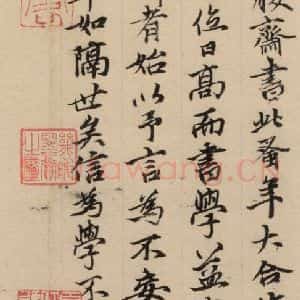 齋書此蚤年大合
位日高而書學益
者始以予言為不妄
如隔世矣信為學不